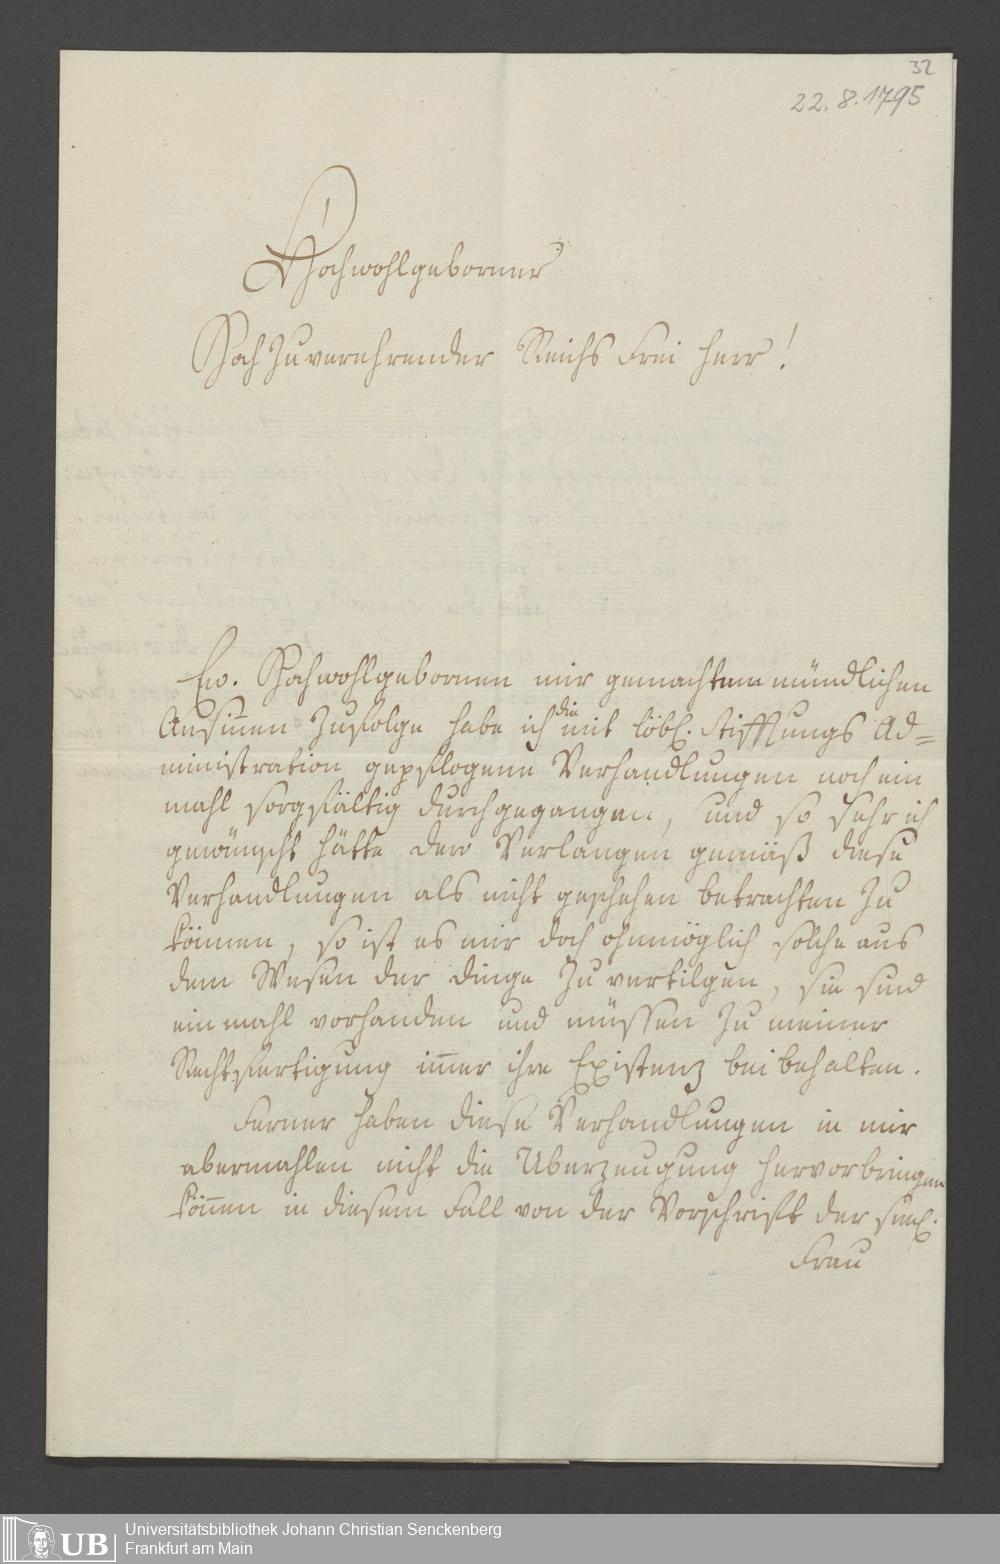 32
22.8.1795
Hochwohlgeborner
Hoch Zuverehrender Reichs Frei Herr!
Ew. Hochwohlgebornen mir gemachtem mündlichen
Ansinnen Zufolge habe ich die mit löbl. Stifftungs Ad=
ministration gepflogene Verhandlungen noch ein
mahl sorgfältig durchgegangen, und so sehr ich
gewünscht hätte dero Verlangen gemäß diese
Verhandlungen als nicht geschehen betrachten Zu
können, so ist es mir doch ohnmöglich solche aus
dem Wesen der Dinge Zu vertilgen, sie sind
ein mahl vorhanden und müssen Zu meiner
Rechtfertigung im̄er ihre Existenz bei behalten.
Ferner haben diese Verhandlungen in mir
abermahlen nicht die Uberzeugung hervorbringen
kön̄en in diesem Fall von der Vorschrift der seel.
Frau
UB
Universitätsbibliothek Johann Christian Senckenberg
Frankfurt am Main